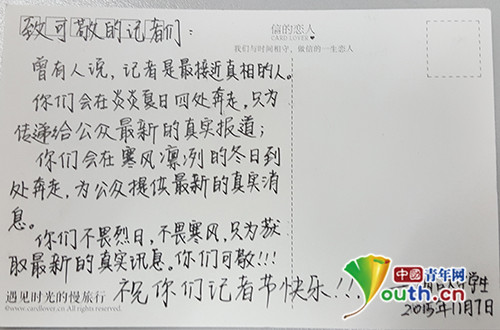 致可敬的记者们：
曾有人说，记者是最接近真相的人。
你们会在炎炎夏日四处奔走，只为
传递给公众最新的真实报道；
你们会在寒风凛冽的冬日到
处奔走，为公众提供最新的真实消
息。
你们不畏烈日，不畏寒风，只为获
取最新的真实讯息。你们可敬！！！
祝你们记者节快乐！！！
学生
2015年11月7日
信的恋人
CARD LOVER
我们与时间相守，做信的一生恋人
遇见时光的慢旅行
www.cardlover.cn
中国青年网
youth.cn